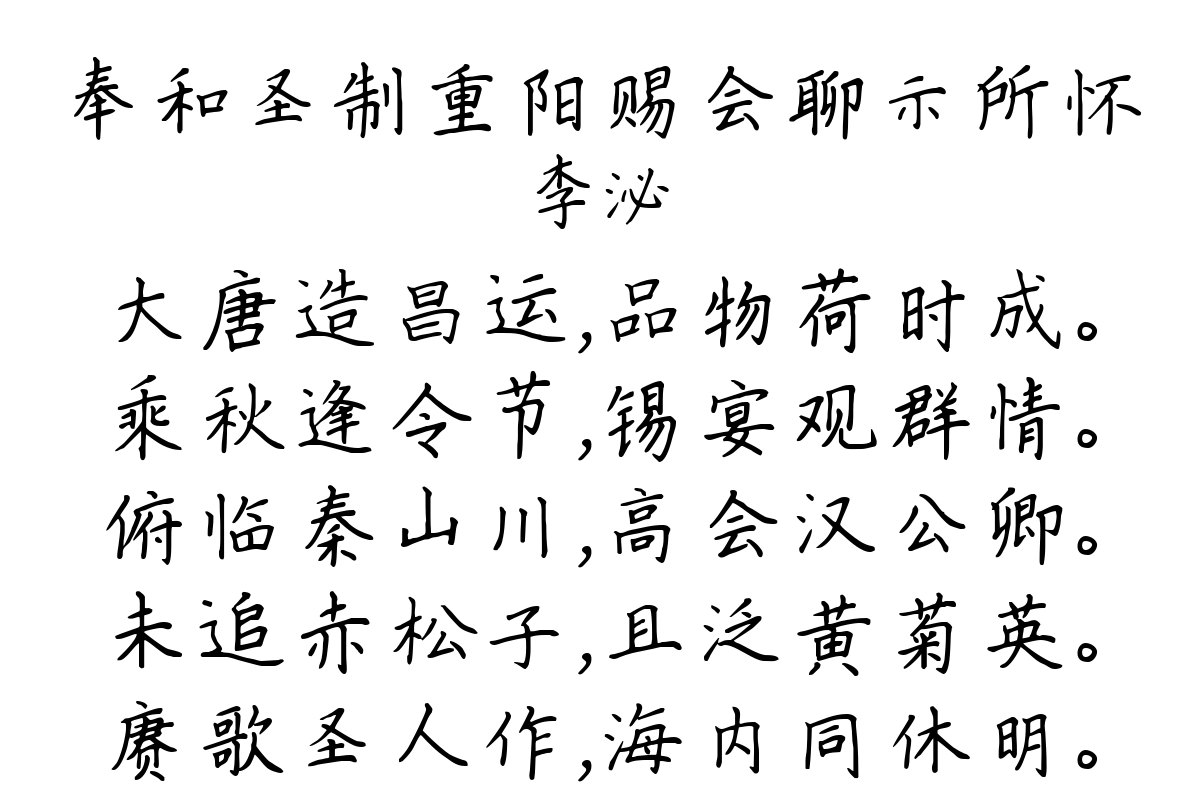 奉和圣制重阳赐会聊示所怀
李泌
大唐造昌运,品物荷时成。
乘秋逢令节,锡宴观群情。
俯临秦山川,高会汉公卿。
未追赤松子,且泛黄菊英。
赓歌圣人作,海内同休明。